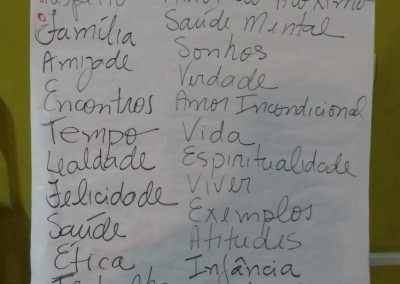 Família Saúde Mental
Amizade Sonhos
Verdade
Encontros Amor Incondicional
Tempo Vida
Lealdade Espiritualidade
Felicidade Viver
Saúde Exemplos
Atitudes
Ética Infância